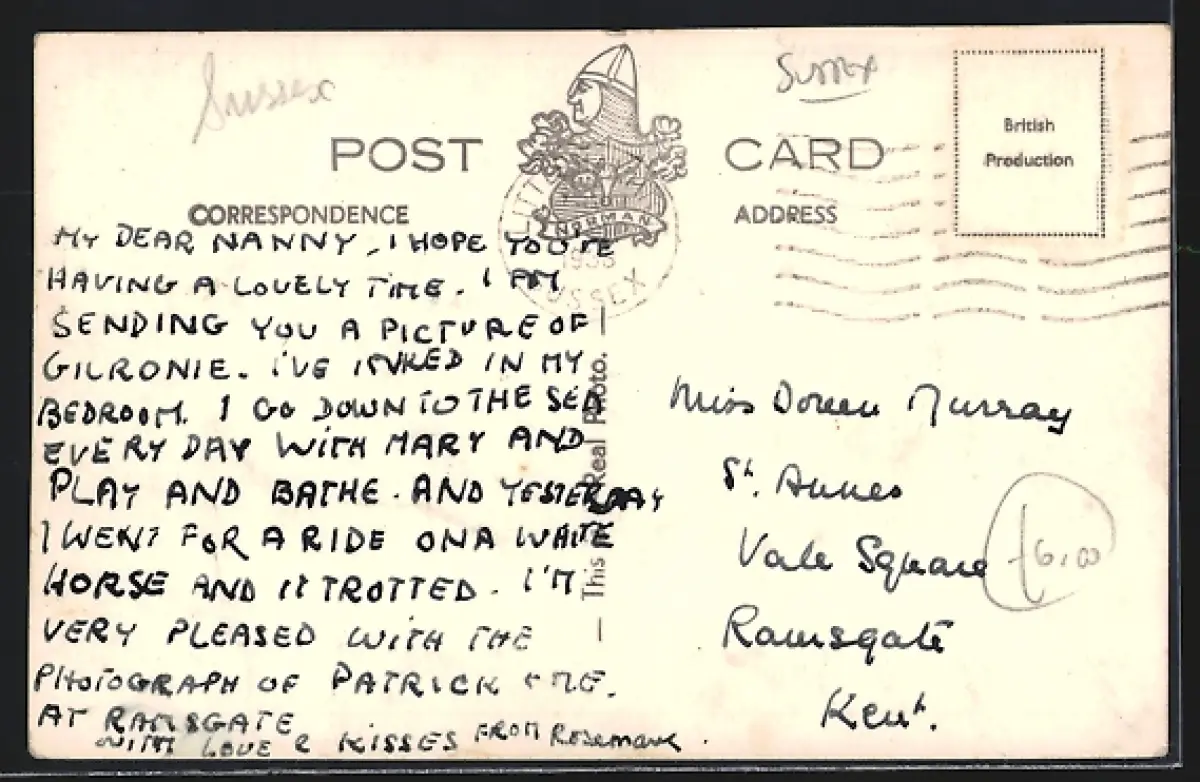 Sussex
Sussex
POST CARD
British
Production
NORMAN
1955
SUSSEX
CORRESPONDENCE
ADDRESS
MY DEAR NANNY, I HOPE YOU'RE
HAVING A LOVELY TIME. I AM
SENDING YOU A PICTURE OF
GILRONIE. I'VE INKED IN MY
BEDROOM. I GO DOWN TO THE SEA
EVERY DAY WITH MARY AND
PLAY AND BATHE. AND YESTERDAY
I WENT FOR A RIDE ON A WHITE
HORSE AND IT TROTTED. I'M
VERY PLEASED WITH THE
PHOTOGRAPH OF PATRICK & ME.
AT RAMSGATE
WITH LOVE & KISSES FROM Rosemary.
This Real Photo.
Miss Doreen Murray
St. Annes
Vale Square
Ramsgate
Kent.
6.00